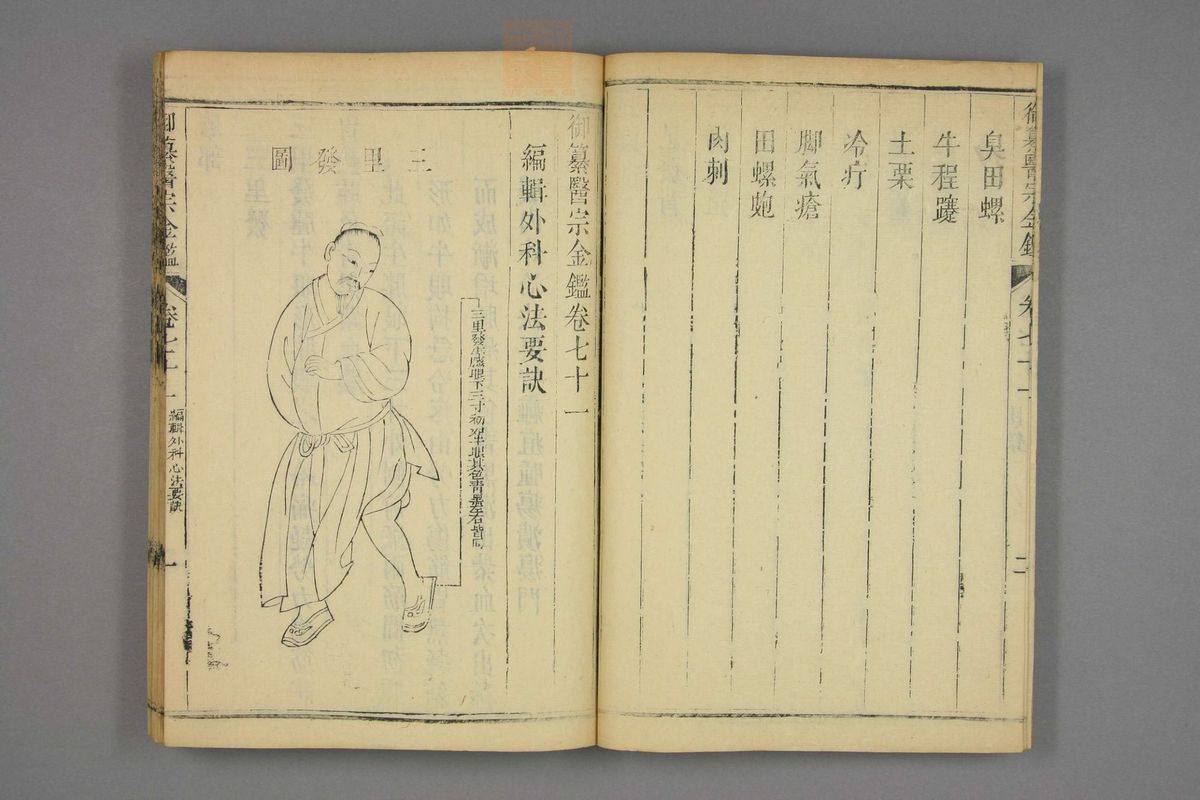 臭田螺
牛程蹇
土栗
冷疔
脚氣瘡
田螺皰
肉刺
御纂醫宗金鑑
卷七十一
二
御纂醫宗金鑑卷七十一
編輯外科心法要訣
三里發圖
三里發生膝眼下三寸初如牛眼其色青黑左右皆同
御纂醫宗金鑑
卷七十一
編輯外科心法要訣
一